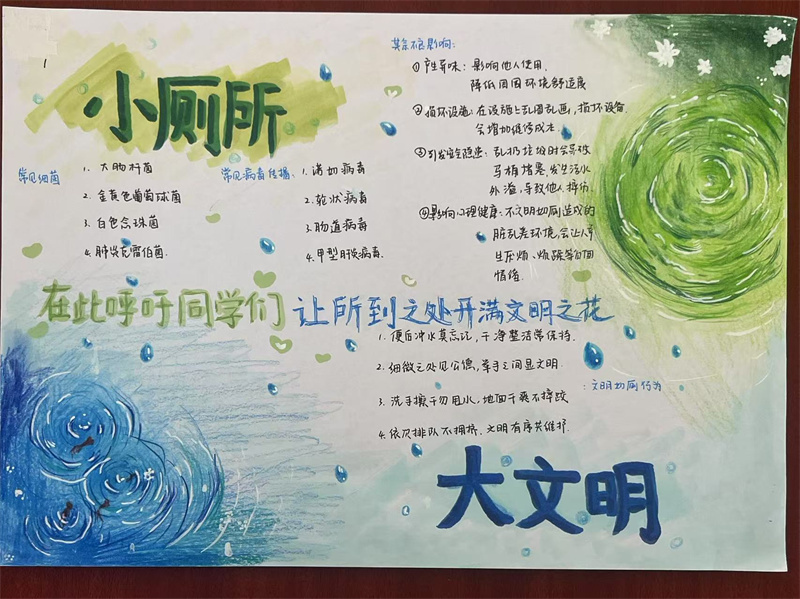 小厕所
常见细菌
1. 大肠杆菌
2. 金黄色葡萄球菌
3. 白色念珠菌
4. 肺炎克雷伯菌
常见病毒传播:
1. 诺如病毒
2. 轮状病毒
3. 肠道病毒
4. 甲型肝炎病毒.
其余不良影响:
①产生异味: 影响他人使用,
降低周围环境舒适度
②损坏设施: 在设施上乱涂乱画, 损坏设备
会增加维修成本.
③引发安全隐患: 乱扔垃圾时会导致
马桶堵塞,发生污水
外溢, 导致他人摔伤.
④影响心理健康: 不文明如厕造成的
脏乱差环境,会让人
生厌烦、烦躁等负面
情绪.
在此呼吁同学们 让所到之处开满文明之花
1. 便后冲水莫忘记, 干净整洁常保持.
2. 细微之处见公德, 举手之间显文明.
3. 洗手擦干勿甩水, 地面干爽不摔跤
4. 依次排队不拥挤、文明有序共维护.
: 文明如厕行为
大文明